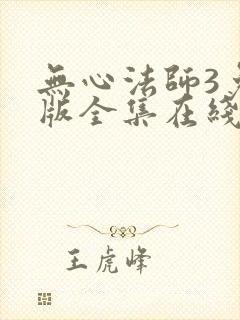 無心法師3
版全集在綫
王虎峰